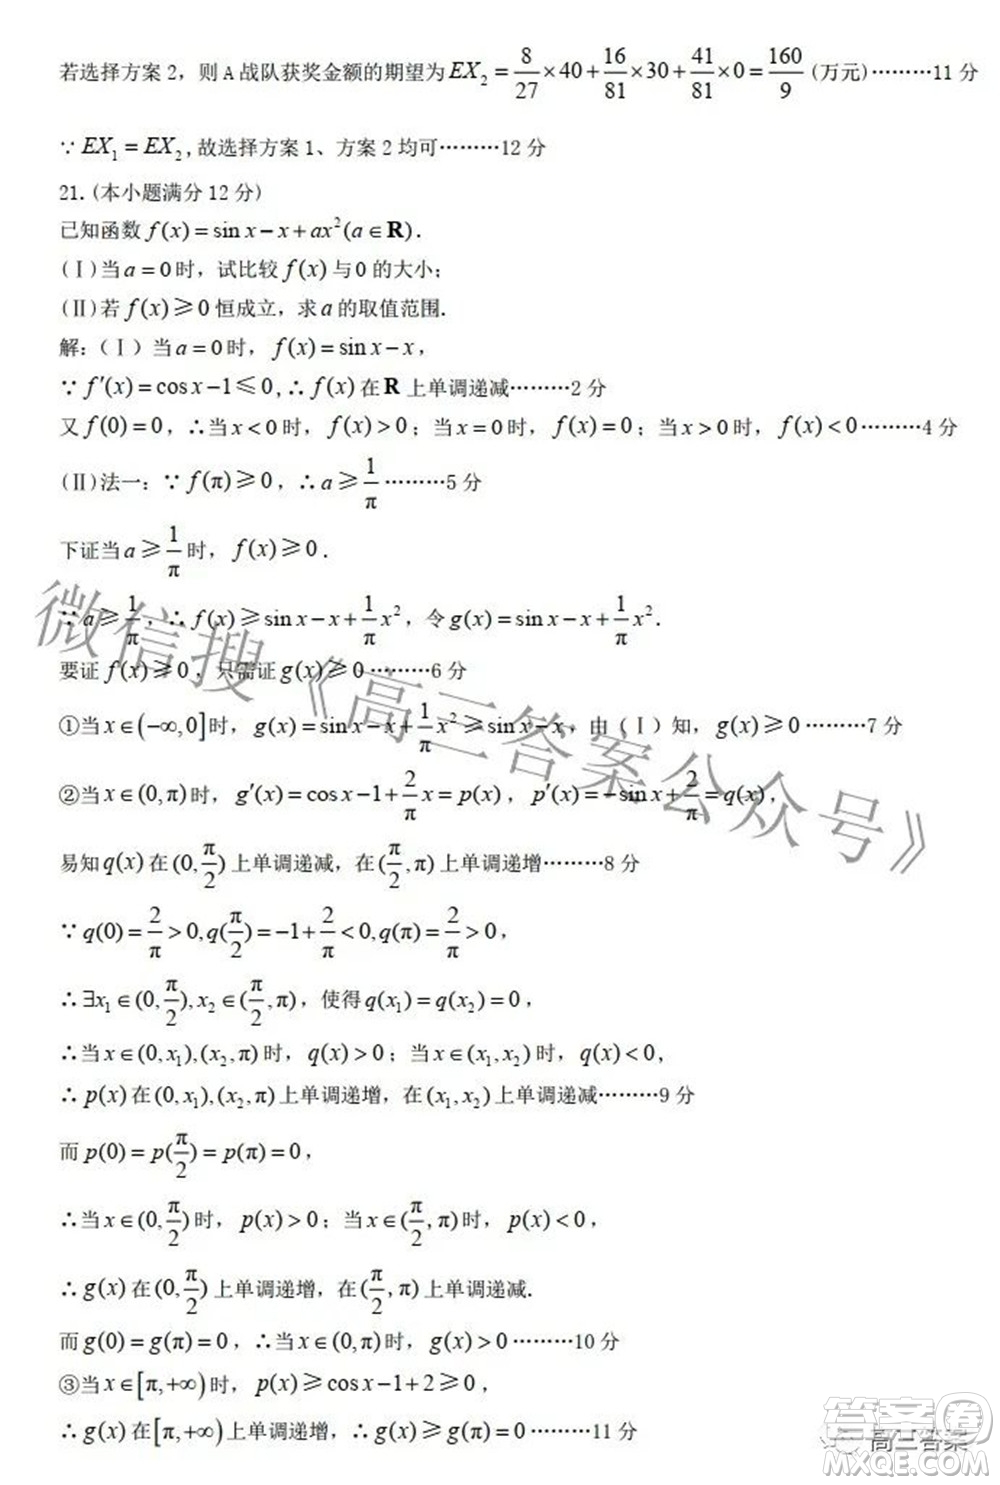 若选择方案 2，则 A 战队获奖金额的期望为 EX₂ = 8/27 ×40 + 16/81 ×30 + 41/81 ×0 = 160/9 (万元)………11 分
∵ EX₁ = EX₂ ,故选择方案 1、方案 2 均可………12 分
21.(本小题满分 12 分)
已知函数 f(x) = sin x − x + ax² (a ∈ R).
(Ⅰ)当 a = 0 时，试比较 f(x) 与 0 的大小;
(Ⅱ)若 f(x) ⩾ 0 恒成立，求 a 的取值范围.
解:(Ⅰ)当 a = 0 时， f(x) = sin x − x ，
∵ f′(x) = cos x − 1 ⩽ 0 , ∴ f(x) 在 R 上单调递减………2 分
又 f(0) = 0 ，∴当 x < 0 时， f(x) > 0 ；当 x = 0 时， f(x) = 0 ；当 x > 0 时， f(x) < 0 ………4 分
(Ⅱ)法一：∵ f(π) ⩾ 0 ，∴ a ⩾ 1/π ………5 分
下证当 a ⩾ 1/π 时， f(x) ⩾ 0 .
∵ a ⩾ 1/π ，∴ f(x) ⩾ sin x − x + 1/π x² ，令 g(x) = sin x − x + 1/π x² .
要证 f(x) ⩾ 0 ，只需证 g(x) ⩾ 0 ………6 分
①当 x ∈ (−∞,0] 时， g(x) = sin x − x + 1/π x² ⩾ sin x − x ，由（Ⅰ）知， g(x) ⩾ 0 ………7 分
②当 x ∈ (0, π) 时， g′(x) = cos x − 1 + 2/π x = p(x) ， p′(x) = − sin x + 2/π = q(x) ，
易知 q(x) 在 (0, π/2) 上单调递减，在 (π/2 , π) 上单调递增………8 分
∵ q(0) = 2/π > 0, q(π/2) = −1 + 2/π < 0, q(π) = 2/π > 0 ，
∴ ∃x₁ ∈ (0, π/2), x₂ ∈ (π/2 , π) ，使得 q(x₁) = q(x₂) = 0 ，
∴当 x ∈ (0, x₁), (x₂, π) 时， q(x) > 0 ；当 x ∈ (x₁, x₂) 时， q(x) < 0 ,
∴ p(x) 在 (0, x₁), (x₂, π) 上单调递增，在 (x₁, x₂) 上单调递减………9 分
而 p(0) = p(π/2) = p(π) = 0 ，
∴当 x ∈ (0, π/2) 时， p(x) > 0 ；当 x ∈ (π/2 , π) 时， p(x) < 0 ，
∴ g(x) 在 (0, π/2) 上单调递增，在 (π/2 , π) 上单调递减.
而 g(0) = g(π) = 0 ，∴当 x ∈ (0, π) 时， g(x) > 0 ………10 分
③当 x ∈ [π, +∞) 时， p(x) ⩾ cos x − 1 + 2 ⩾ 0 ，
∴ g(x) 在 [π, +∞) 上单调递增，∴ g(x) ⩾ g(π) = 0 ………11 分
微信搜《高三答案公众号》
答案圈
高三答案
MXQE.COM